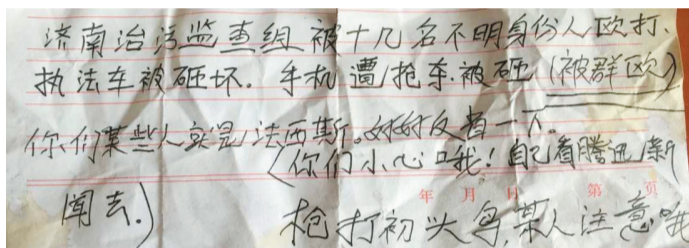 济南治污监查组 被十几名不明身份人欧打、
执法车被砸坏. 手机遭抢车.被砸 (被群欧)
你们某些人就是法西斯。好好反省一下。
(你们小心哦! 自己看腾迅新
闻去.)
年 月 日 第 页
枪打初头鸟,某人注意哦